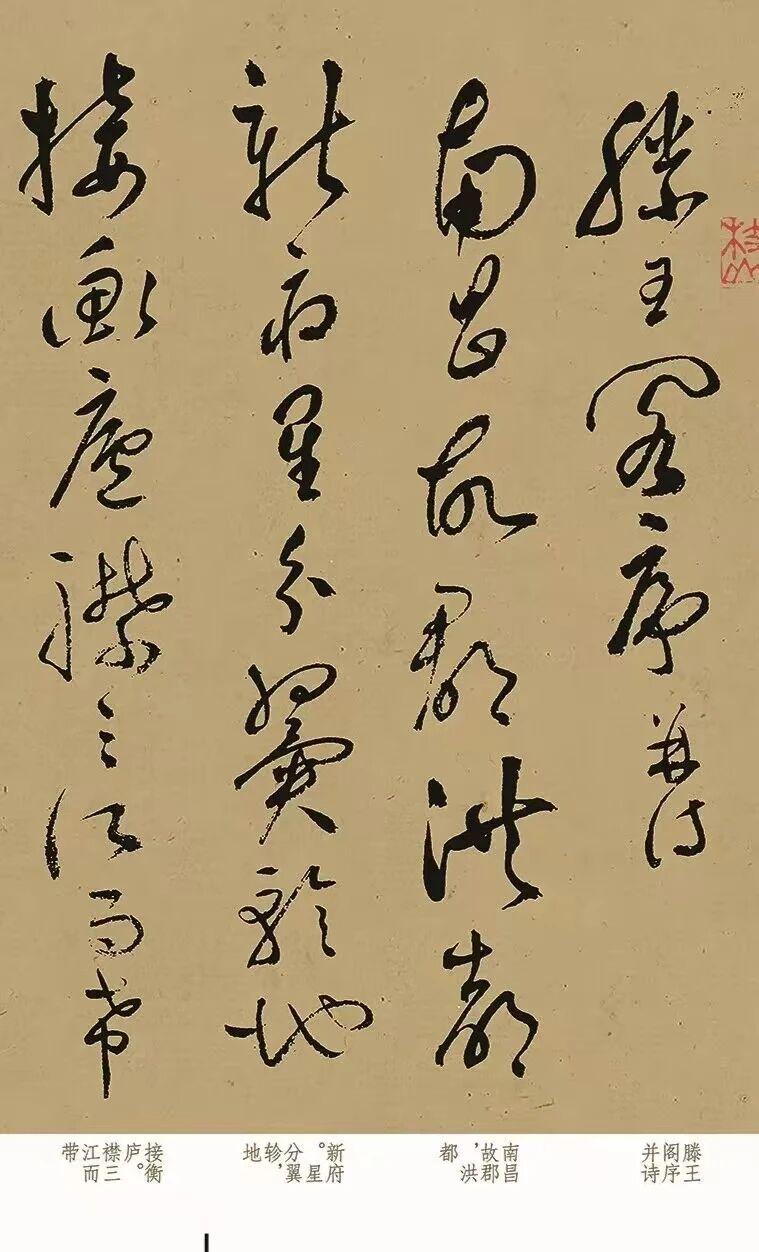 滕王閣序并詩
南昌故郡洪都
新府星分翼軫地
接衡廬襟三江而帶
枝山
滕王阁序并诗
南昌故郡，洪都
新府。星分翼轸，地
接衡庐。襟三江而带